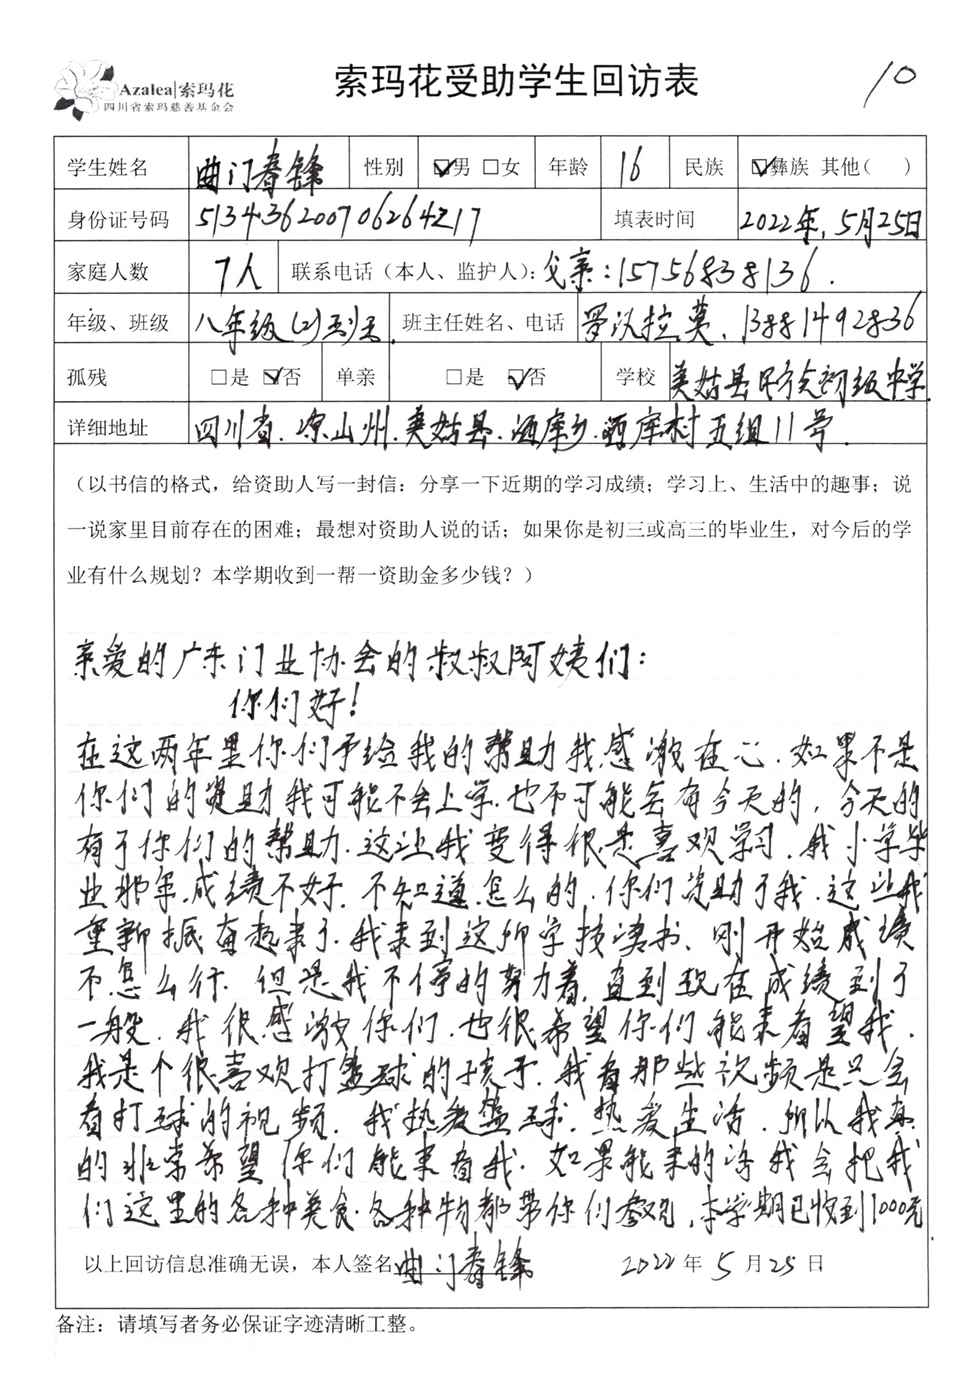 Azalea|索玛花
四川省索玛慈善基金会
索玛花受助学生回访表
10
学生姓名 曲门春锋 性别 ☑男 □女 年龄 16 民族 ☑彝族 其他( )
身份证号码 513436200706264217 填表时间 2022年,5月25日
家庭人数 7人 联系电话（本人、监护人）：父亲：15756838136.
年级、班级 八年级(2) 班主任姓名、电话 罗以拉莫、13881492836
孤残 □是 ☑否 单亲 □是 ☑否 学校 美姑县民族初级中学.
详细地址 四川省.凉山州.美姑县.洒库乡.洒库村五组11号.
（以书信的格式，给资助人写一封信：分享一下近期的学习成绩；学习上、生活中的趣事；说
一说家里目前存在的困难；最想对资助人说的话；如果你是初三或高三的毕业生，对今后的学
业有什么规划？本学期收到一帮一资助金多少钱？）
亲爱的广东门业协会的叔叔阿姨们：
你们好！
在这两年里你们予给我的帮助我感激在心.如果不是
你们的资助我可能不会上学.也不可能会有今天的,今天的
有了你们的帮助.这让我变得很是喜欢学习.我小学毕
业那年.成绩不好.不知道怎么的.你们资助了我.这让我
重新振奋起来了.我来到这所学校读书.刚开始成绩
不怎么行.但是我不停的努力着,直到现在成绩到了
一般.我很感激你们.也很希望你们能来看望我.
我是个很喜欢打篮球的孩子.我看那些视频是只会
看打球的视频.我热爱篮球.热爱生活.所以我真
的非常希望你们能来看我.如果能来的话我会把我
们这里的各种美食.各种物都带你们参观,本学期已收到1000元.
以上回访信息准确无误，本人签名曲门春锋 2022年5月25日
备注：请填写者务必保证字迹清晰工整。